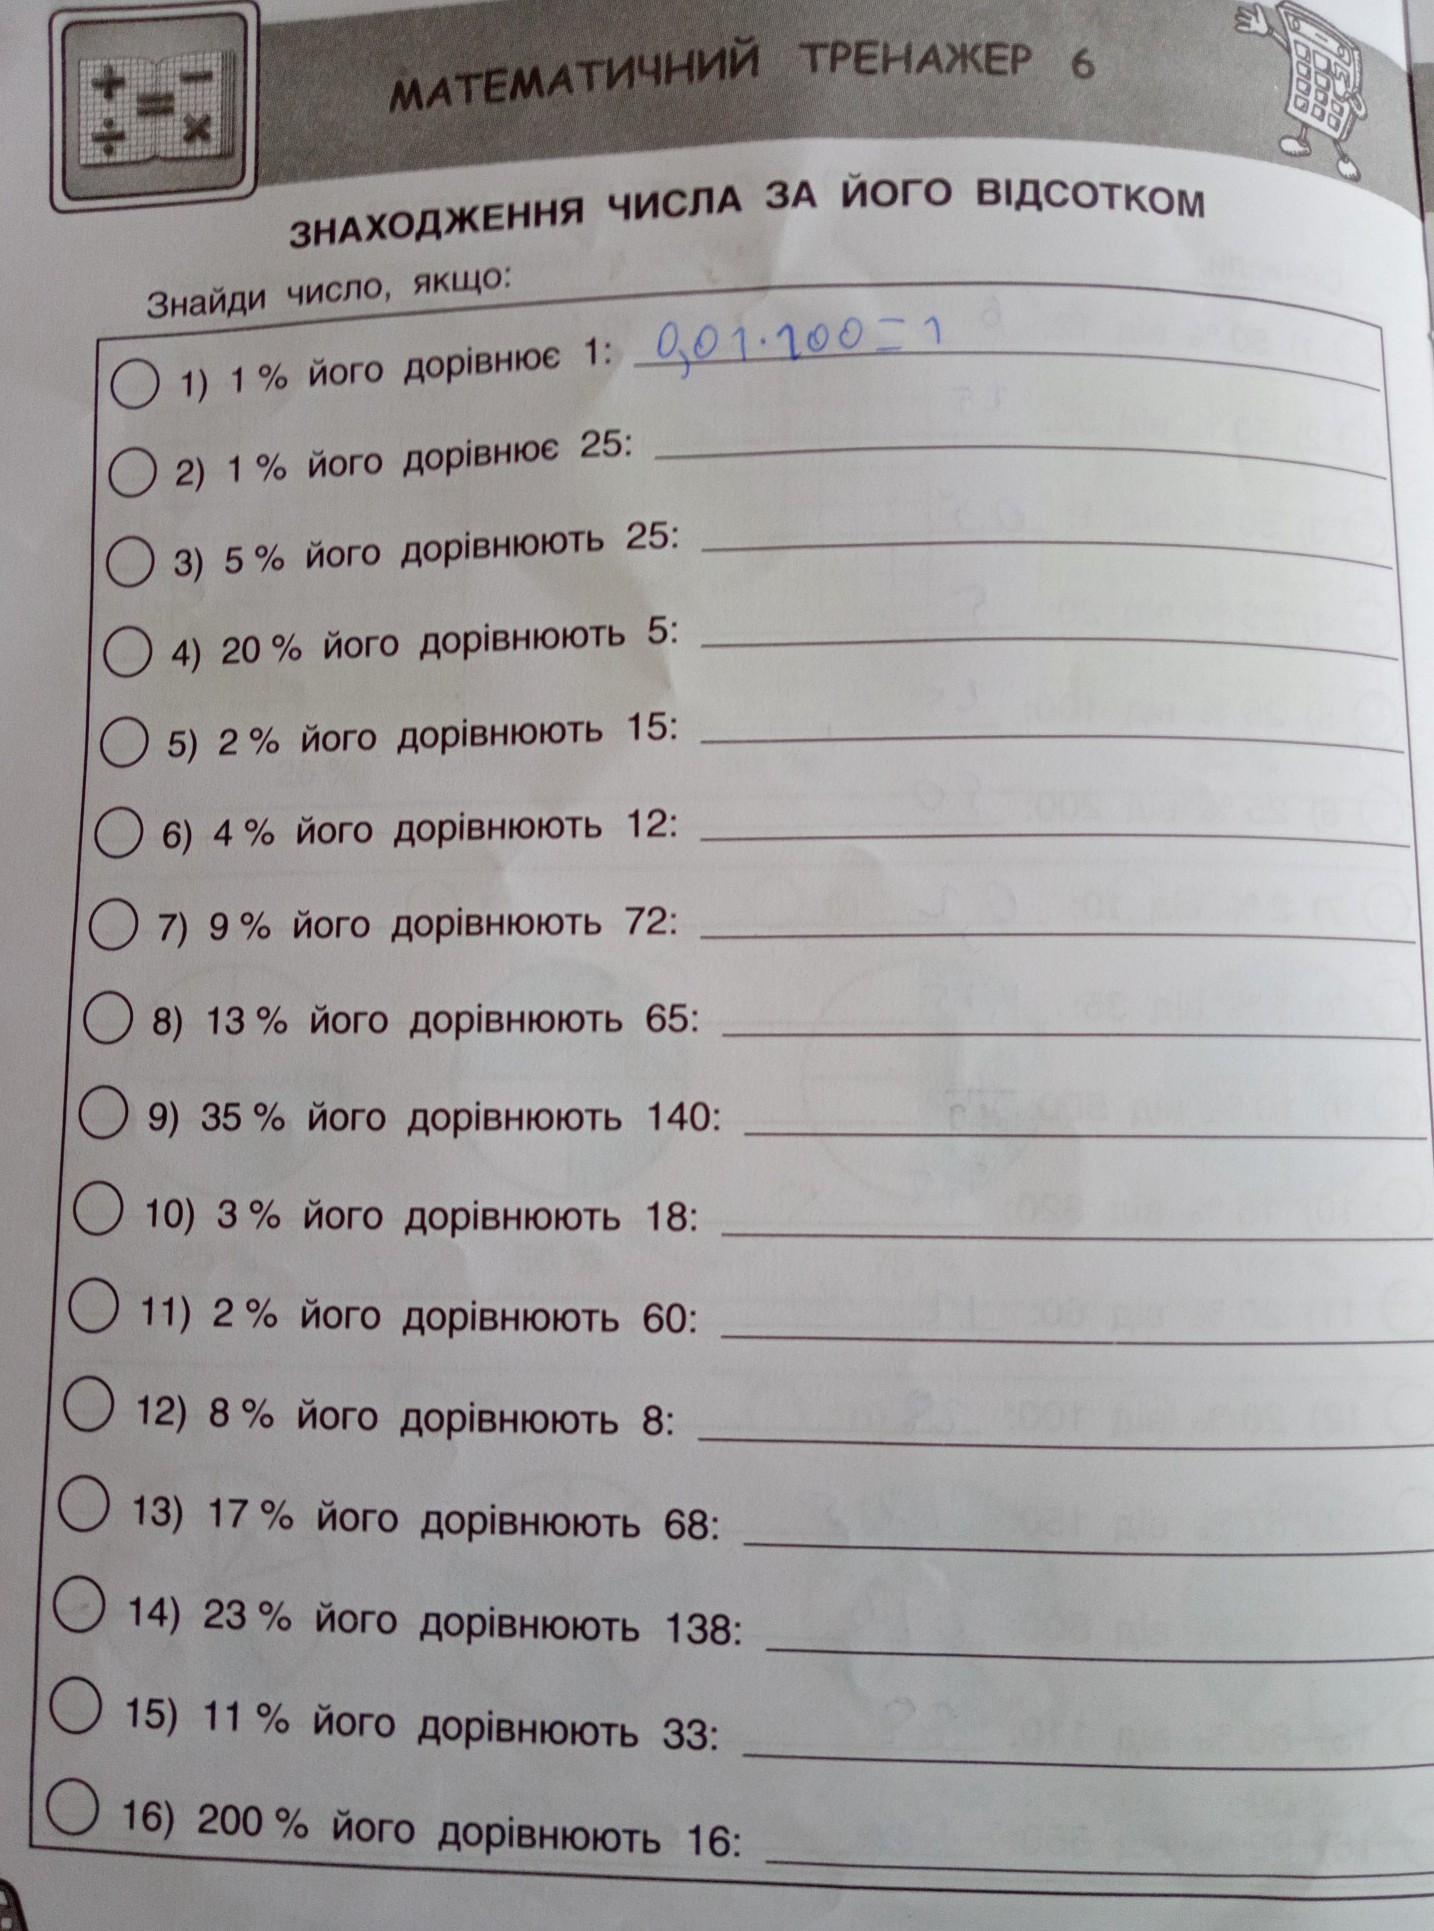 МАТЕМАТИЧНИЙ ТРЕНАЖЕР 6
ЗНАХОДЖЕННЯ ЧИСЛА ЗА ЙОГО ВІДСОТКОМ
Знайди число, якщо:
1) 1 % його дорівнює 1: 0,01·100=1
2) 1 % його дорівнює 25:
3) 5 % його дорівнюють 25:
4) 20 % його дорівнюють 5:
5) 2 % його дорівнюють 15:
6) 4 % його дорівнюють 12:
7) 9 % його дорівнюють 72:
8) 13 % його дорівнюють 65:
9) 35 % його дорівнюють 140:
10) 3 % його дорівнюють 18:
11) 2 % його дорівнюють 60:
12) 8 % його дорівнюють 8:
13) 17 % його дорівнюють 68:
14) 23 % його дорівнюють 138:
15) 11 % його дорівнюють 33:
16) 200 % його дорівнюють 16: